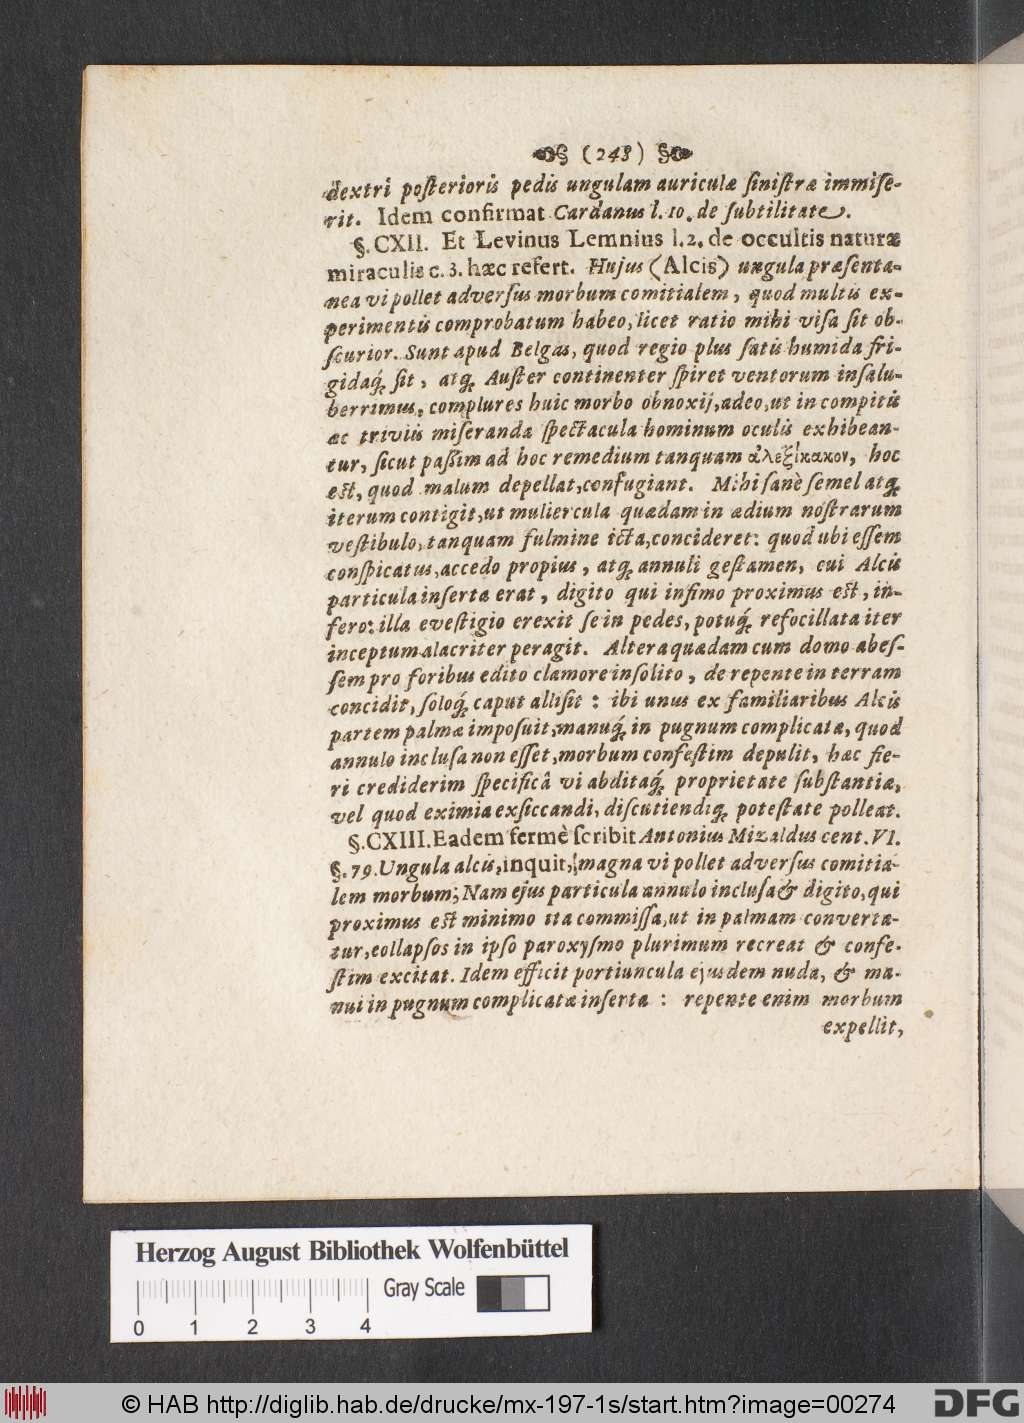 (248)
dextri posterioris pedis ungulam auriculæ sinistræ immise-
rit. Idem confirmat Cardanus l. 10. de subtilitate.
§. CXII. Et Levinus Lemnius l. 2. de occultis naturæ
miraculis c. 3. hæc refert. Hujus (Alcis) ungula præsenta-
nea vi pollet adversus morbum comitialem, quod multis ex-
perimentis comprobatum habeo, licet ratio mihi visa sit ob-
scurior. Sunt apud Belgas, quod regio plus satis humida fri-
gidaq́; sit, atq; Auster continenter spiret ventorum insalu-
berrimus, complures huic morbo obnoxij, adeo, ut in compitis
ac triviis miseranda spectacula hominum oculis exhibean-
tur, sicut passim ad hoc remedium tanquam ἀλεξίκακον, hoc
est, quod malum depellat, confugiant. Mihi sanè semel atq;
iterum contigit, ut muliercula quædam in ædium nostrarum
vestibulo, tanquam fulmine icta, concideret: quod ubi essem
conspicatus, accedo propius, atq; annuli gestamen, cui Alcis
particula inserta erat, digito qui infimo proximus est, in-
fero: illa evestigio erexit se in pedes, potuq́; refocillata iter
inceptum alacriter peragit. Altera quædam cum domo abes-
sem pro foribus edito clamore insolito, de repente in terram
concidit, soloq́; caput allisit: ibi unus ex familiaribus Alcis
partem palmæ imposuit, manuq́; in pugnum complicatæ, quod
annulo inclusa non esset, morbum confestim depulit, hæc fie-
ri crediderim specificâ vi abditaq́; proprietate substantiæ,
vel quod eximia exsiccandi, discutiendiq; potestate polleat.
§. CXIII. Eadem fermè scribit Antonius Mizaldus cent. VI.
§. 79. Ungula alcis, inquit, magna vi pollet adversus comitia-
lem morbum; Nam ejus particula annulo inclusa & digito, qui
proximus est minimo ita commissa, ut in palmam converta-
tur, collapsos in ipso paroxysmo plurimum recreat & confe-
stim excitat. Idem efficit portiuncula ejusdem nuda, & ma-
nui in pugnum complicatæ inserta: repente enim morbum
expellit,
Herzog August Bibliothek Wolfenbüttel
Gray Scale
0 1 2 3 4
© HAB http://diglib.hab.de/drucke/mx-197-1s/start.htm?image=00274
DFG